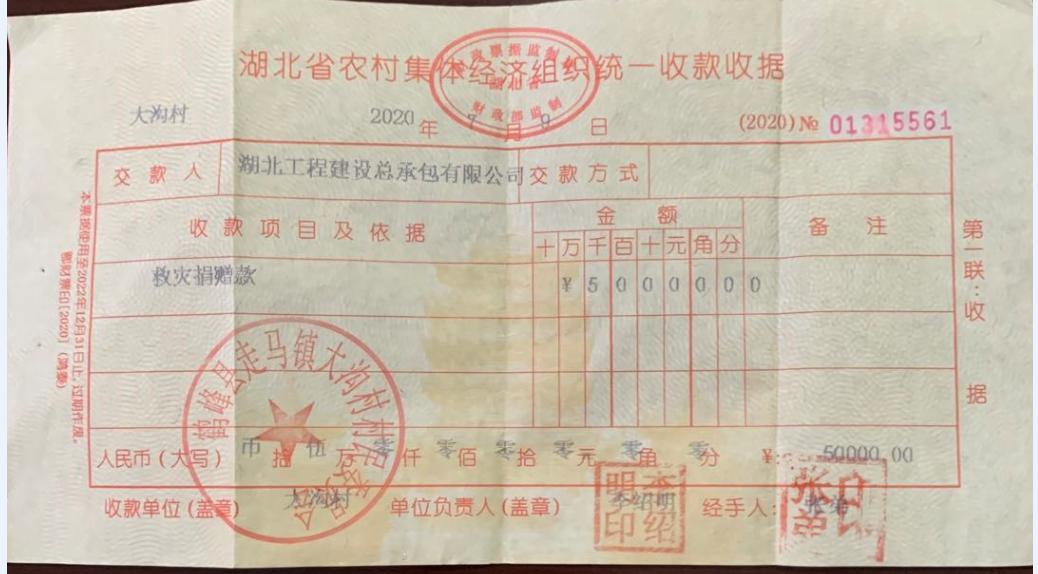 湖北省农村集体经济组织统一收款收据
财政部监制
大沟村 2020 年 7 月 9 日 (2020)№ 01315561
交款人 湖北工程建设总承包有限公司 交款方式
收款项目及依据 金额 备注
十 万 千 百 十 元 角 分
救灾捐赠款 ¥ 5 0 0 0 0 0 0
人民币(大写) 币 拾 伍 万 零 仟 零 佰 零 拾 零 元 零 角 零 分 ¥: 50000.00
收款单位(盖章) 大沟村 单位负责人(盖章) 李绍明 经手人:
鹤峰县走马镇大沟村村民委员会
李绍明印
第一联:收据
本票据使用至2022年12月31日止,过期作废。
鄂财票印[2020]